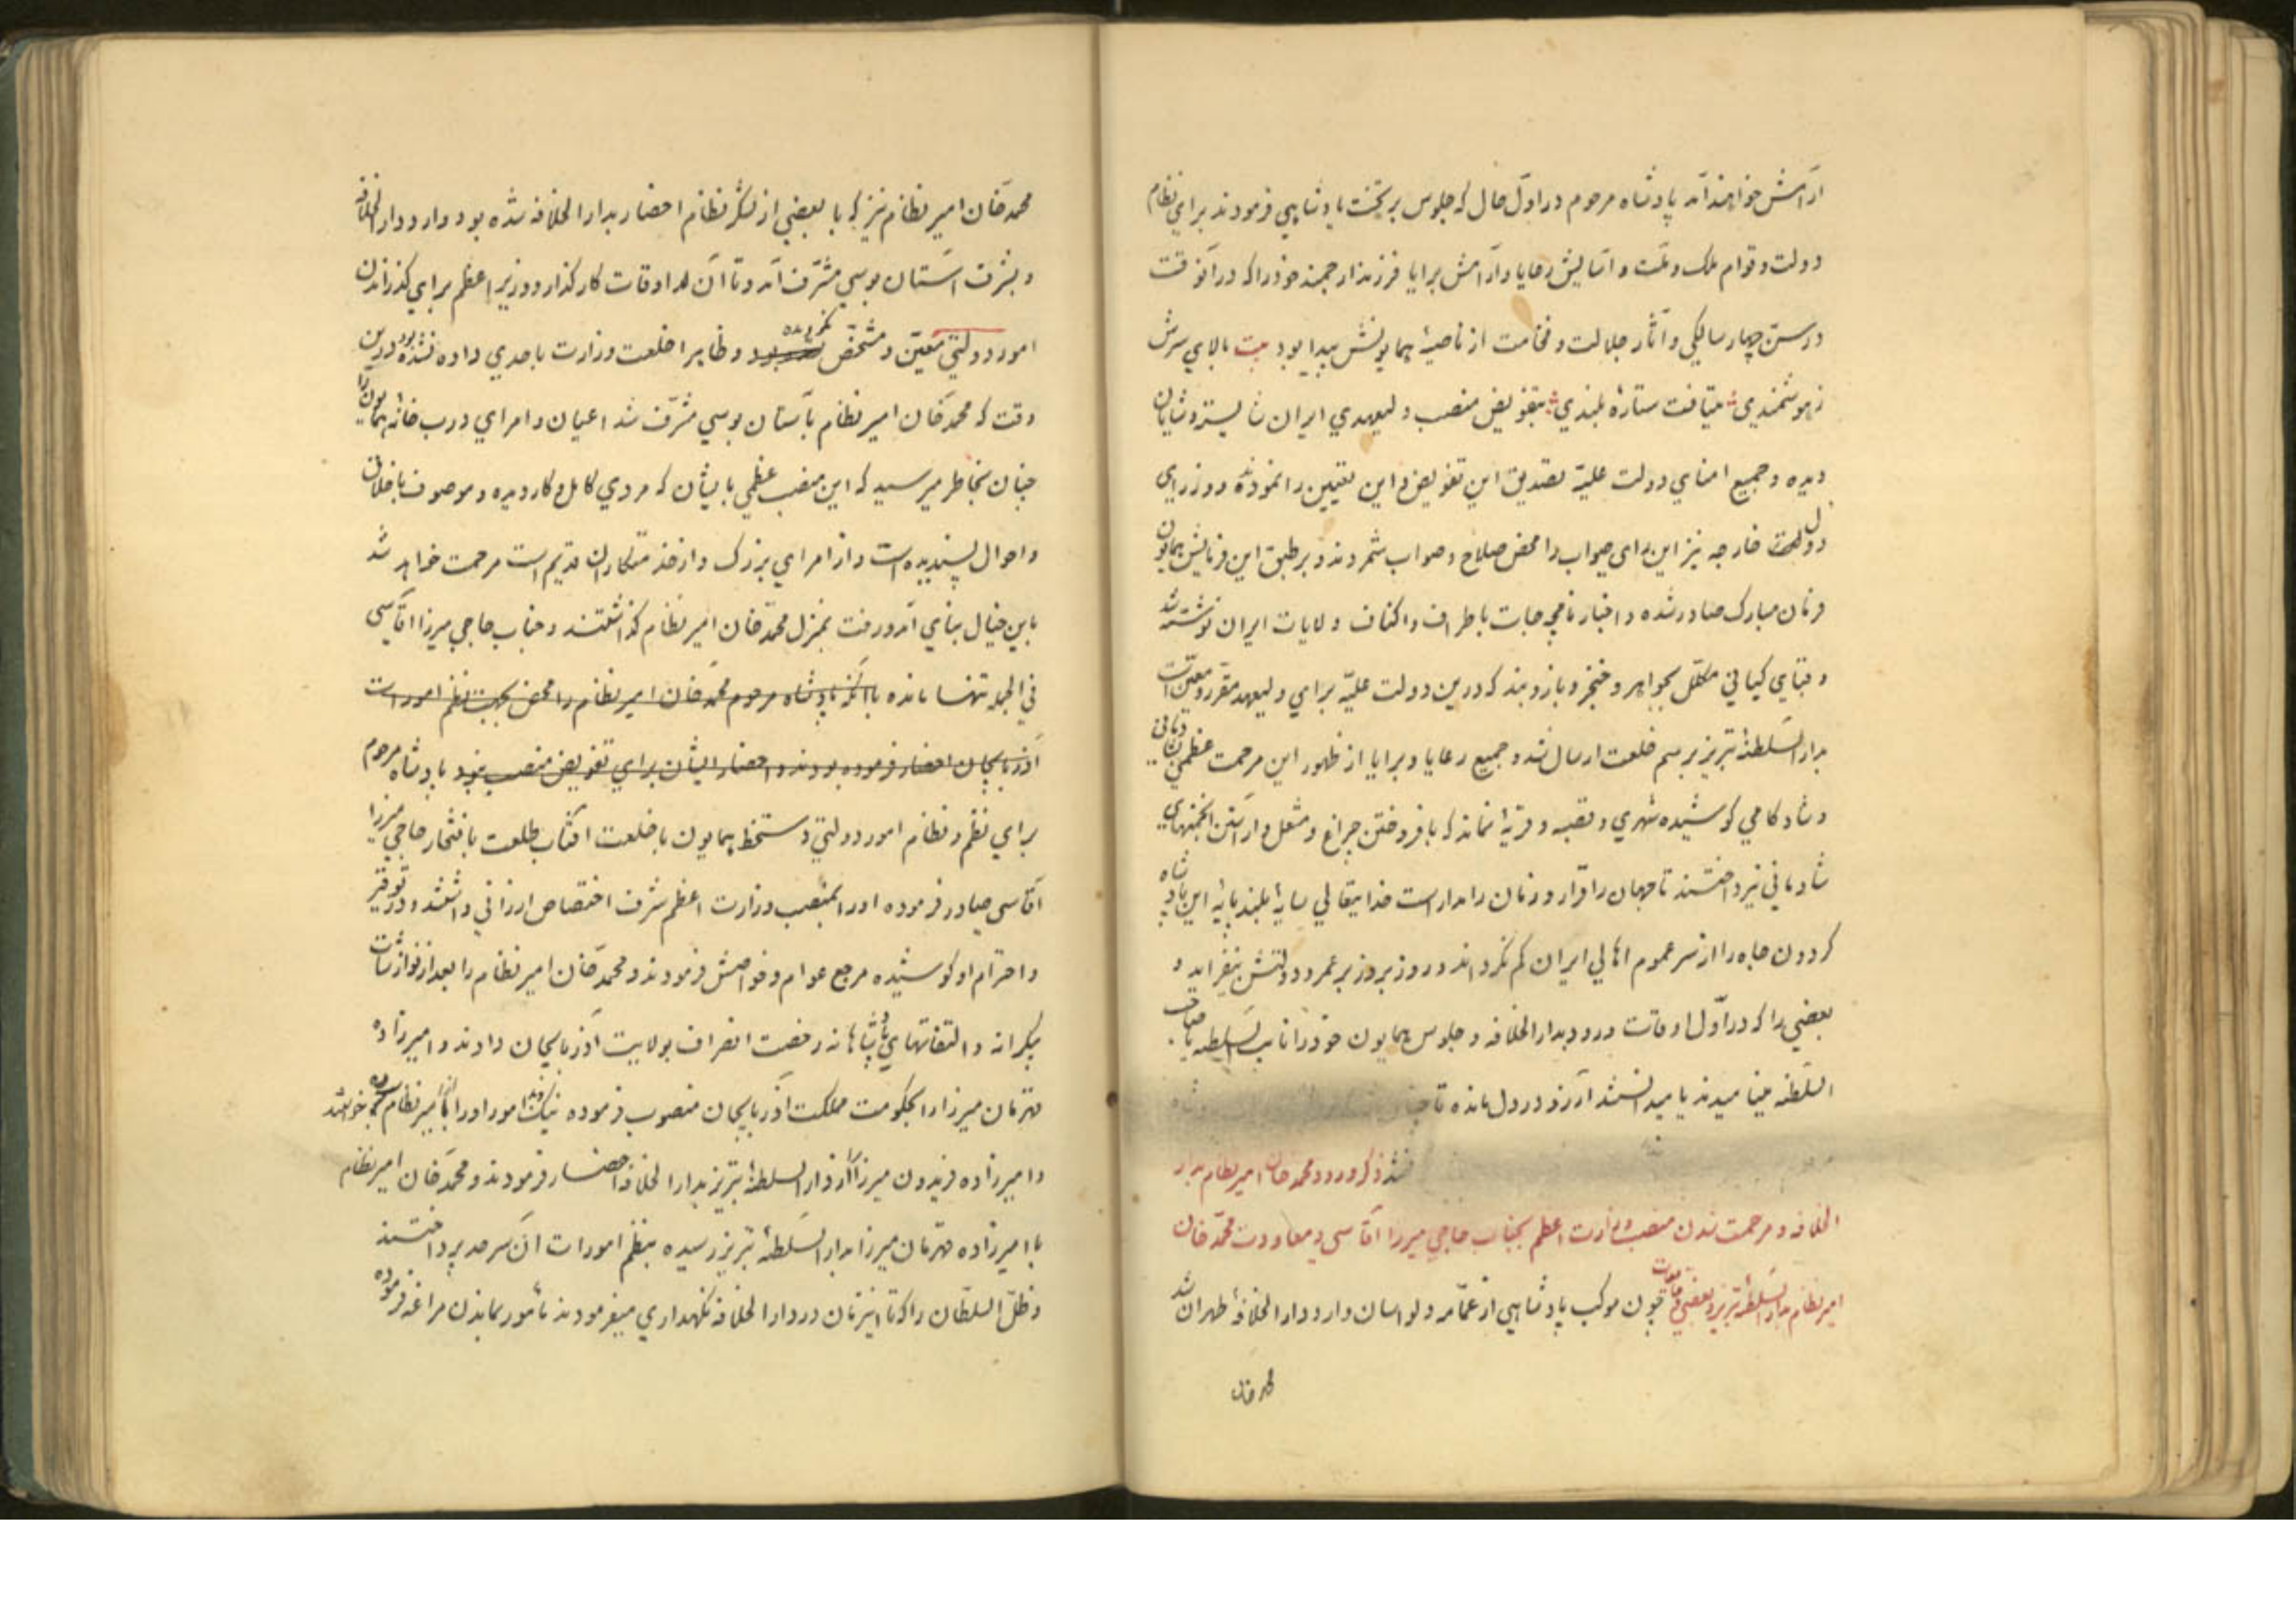 آرامش خواهند آمد پادشاه مرحوم در اول حال که جلوس بر تخت پادشاهی فرمودند برای نظام
دولت و قوام ملک و ملت و آسایش رعایا و آرامش برایا فرزند ارجمند خود را که در آنوقت
در سن چهار سالگی و آثار جلالت و فخامت از ناصیهٔ همایونش پیدا بود بیت بالای سرش
ز هوشمندی میتافت ستارهٔ بلندی بتفویض منصب ولیعهدی ایران شایسته و شایان
دیده و جمیع امنای دولت علیه تصدیق این تفویض و این تعیین را نموده و وزرای
دول خارجه نیز این رای صواب را محض صلاح و صواب شمردند و بر طبق این فرمایش همایون
فرمان مبارک صادر شده و اخبار نامجه جات باطراف و اکناف ولایات ایران نوشته شد
و قبای کیانی مکلل بجواهر و خنجر و بازوبند که درین دولت علیه برای ولیعهد مقرر و معین است
بدار السلطنهٔ تبریز برسم خلعت ارسال شد و جمیع رعایا و برایا از ظهور این مرحمت عظمی
و شادکامی کوشیده شهری و قصبه و قریهٔ نماند که بافروختن چراغ و مشعل و آراستن انجمنهای
شادمانی نپرداختند تا جهان را قرار و زمان را مدار است خدایتعالی سایهٔ بلند پایهٔ این پادشاه
گردون جاه را از سر عموم اهالی ایران کم نگرداند و روز بروز بر عمر و دولتش بیفزاید و
بعضی را که در اول اوقات ورود بدار الخلافه و جلوس همایون خود را نایب السلطنه یا صاحب
السلطنه مینامیدند یا میدانستند آرزو در دل مانده تا
شد ذکر ورود محمد خان امیر نظام بدار
الخلافه و مرحمت شدن منصب وزارت اعظم بجناب حاجی میرزا آقاسی و معاودت محمد خان
امیر نظام بدار السلطنهٔ تبریز و بعضی چون موکب پادشاهی از عمامه و لواسان وارد دار الخلافهٔ طهران شد
محمد خان
محمد خان امیر نظام نیز که با بعضی از لشکر نظام احضار بدار الخلافه شده بود وارد دار الخلافه
و بشرف آستان بوسی مشرف آمد و تا آن اوقات کارگذار و وزیر اعظم برای گذرانیدن
امور دولتی معین و مشخص نکردیده و ظاهرا خلعت وزارت باحدی داده نشده بود درین
وقت که محمد خان امیر نظام بآستان بوسی مشرف شد اعیان و امرای درب خانهٔ همایون را
چنان بخاطر میرسید که این منصب عظمی بایشان که مردی کامل و کار دیده و موصوف باخلاق
و احوال پسندیده است و از امرای بزرگ و از خدمتکاران قدیم است مرحمت خواهد شد
باین خیال بنای آمد و رفت بمنزل محمد خان امیر نظام گذاشتند و جناب حاجی میرزا آقاسی
فی الجمله تنها مانده با آنکه پادشاه مرحوم محمد خان امیر نظام را محض بجهت نظم امورات
آذربایجان احضار فرموده بودند و احضار ایشان برای تفویض منصب نبود پادشاه مرحوم
برای نظم و نظام امور دولتی دستخط همایون با خلعت آفتاب طلعت بافتخار حاجی میرزا
آقاسی صادر فرموده او را بمنصب وزارت اعظم شرف اختصاص ارزانی داشتند و در توقیر
و احترام او کوشیده مرجع عوام و خواصش فرمودند و محمد خان امیر نظام را بعد از نوازشات
بیکرانه و التفاتهای پادشاهانه رخصت انصراف بولایت آذربایجان دادند و امیرزاده
قهرمان میرزا را بحکومت مملکت آذربایجان منصوب فرموده نیک و بد امور او را بامیر نظام
و امیرزاده فریدون میرزا را از دار السلطنهٔ تبریز بدار الخلافه احضار فرمودند و محمد خان امیر نظام
با امیرزاده قهرمان میرزا بدار السلطنهٔ تبریز رسیده بنظم امورات آن سرحد پرداختند
و ظل السلطان را که تا اینزمان در دار الخلافه نگهداری میفرمودند مأمور بماندن مراغه فرموده